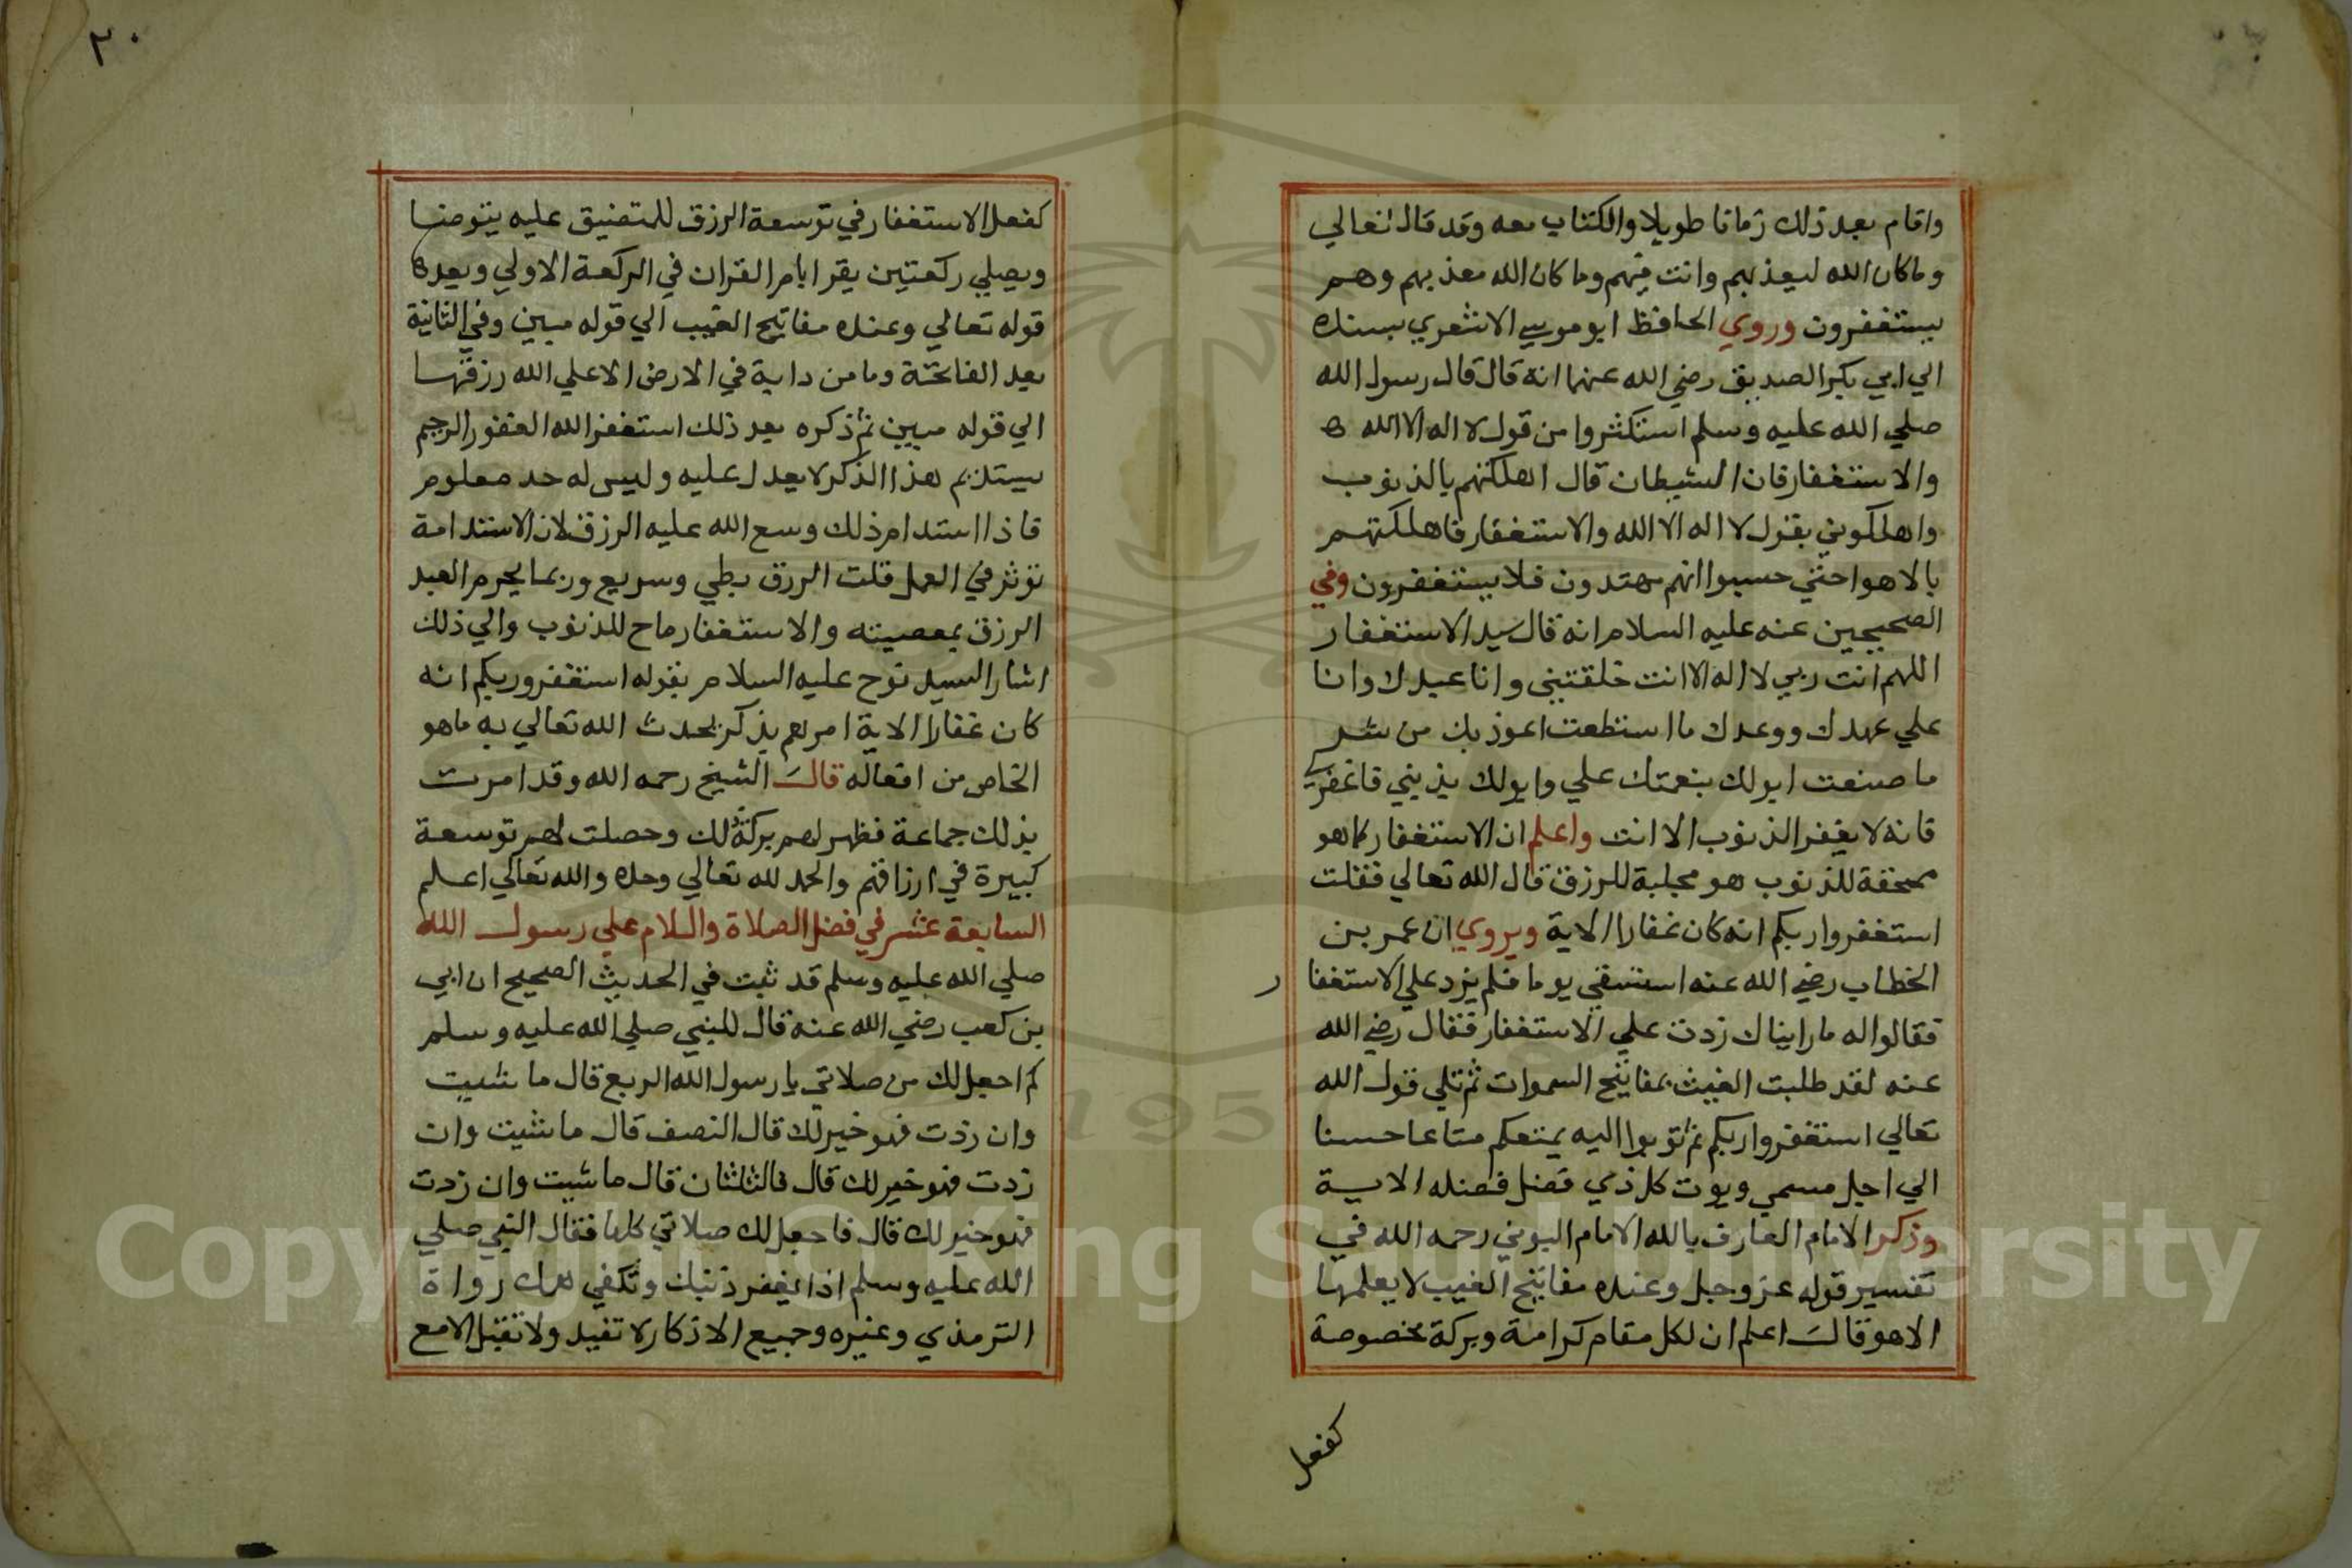 واقام بعد ذلك زمانا طويلا والكتاب معه وقد قال تعالي
وما كان الله ليعذبهم وانت فيهم وما كان الله معذبهم وهم
يستغفرون وروي الحافظ ابو موسي الاشعري بسنده
الي ابي بكر الصديق رضي الله عنهما انه قال قال رسول الله
صلي الله عليه وسلم استكثروا من قول لا اله الا الله
والاستغفار فان الشيطان قال اهلكتهم بالذنوب
واهلكوني بقول لا اله الا الله والاستغفار فاهلكتهم
بالاهوا حتي حسبوا انهم مهتدون فلا يستغفرون وفي
الصحيحين عنه عليه السلام انه قال سيد الاستغفار
اللهم انت ربي لا اله الا انت خلقتني وانا عبدك وانا
علي عهدك ووعدك ما استطعت اعوذ بك من شر
ما صنعت ابولك بنعمتك علي وابولك بذنبي فاغفر لي
فانه لا يغفر الذنوب الا انت واعلم ان الاستغفار كما هو
ممحقة للذنوب هو مجلبة للرزق قال الله تعالي فقلت
استغفروا ربكم انه كان غفارا الاية ويروي ان عمر بن
الخطاب رضي الله عنه استسقي يوما فلم يزد علي الاستغفار
فقالوا له ما رايناك زدت علي الاستغفار فقال رضي الله
عنه لقد طلبت الغيث بمفاتيح السموات ثم تلي قول الله
تعالي استغفروا ربكم ثم توبوا اليه يمتعكم متاعا حسنا
الي اجل مسمي ويوت كل ذي فضل فضله الاية
وذكر الامام العارف بالله الامام البوني رحمه الله في
تفسير قوله عز وجل وعنده مفاتيح الغيب لا يعلمها
الا هو قال اعلم ان لكل مقام كرامة وبركة مخصوصة
كفعل
٢٠
كفعل الاستغفار في توسعة الرزق للمتضيق عليه يتوضا
ويصلي ركعتين يقرا بام القران في الركعة الاولي وبعدها
قوله تعالي وعنده مفاتيح الغيب الي قوله مبين وفي الثانية
بعد الفاتحة وما من دابة في الارض الا علي الله رزقها
الي قوله مبين ثم ذكره بعد ذلك استغفر الله الغفور الرحيم
يستديم هذا الذكر لا يعدل عليه وليس له حد معلوم
فاذا استدام ذلك وسع الله عليه الرزق لان الاستدامة
توثر في العمل قلت الرزق بطي وسريع وربما يحرم العبد
الرزق بمعصيته والاستغفار ماح للذنوب والي ذلك
اشار السيد نوح عليه السلام بقوله استغفرو ربكم انه
كان غفارا الاية امرهم بذكر يحدث الله تعالي به ما هو
الخاص من افعاله قال الشيخ رحمه الله وقد امرت
بذلك جماعة فظهر لهم بركة ذلك وحصلت لهم توسعة
كبيرة في ارزاقهم والحمد لله تعالي وحده والله تعالي اعلم
السابعة عشر في فضل الصلاة والسلام علي رسول الله
صلي الله عليه وسلم قد ثبت في الحديث الصحيح ان ابي
بن كعب رضي الله عنه قال للنبي صلي الله عليه وسلم
كم اجعل لك من صلاتي يا رسول الله الربع قال ما شيت
وان زدت فهو خير لك قال النصف قال ما شيت وان
زدت فهو خير لك قال فالثلثان قال ما شيت وان زدت
فهو خير لك قال فاجعل لك صلاتي كلها فقال النبي صلي
الله عليه وسلم اذا يغفر ذنبك وتكفي همك رواه
الترمذي وغيره وجميع الاذكار لا تفيد ولا تقبل الا مع
Copyright © King Saud University
195